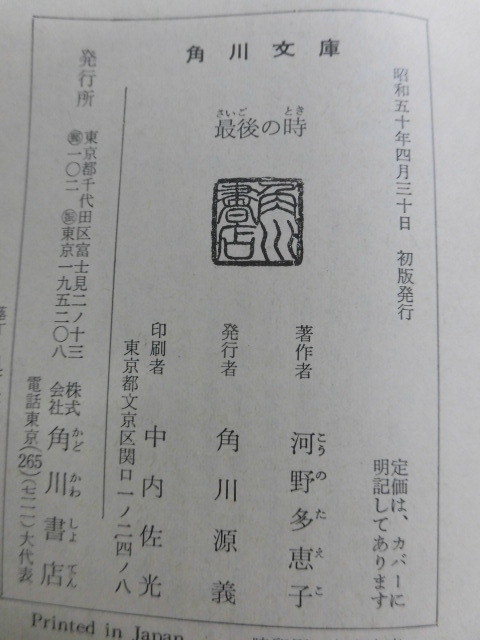 角川文庫
昭和五十年四月三十日　初版発行
定価は、カバーに
明記してあります
最後の時
さいご　とき
角川書店
著作者　河野多恵子
こうのたえこ
発行者　角川源義
印刷者　中内佐光
東京都文京区関口一ノ二四ノ八
発行所
東京都千代田区富士見二ノ十三
㊞一〇二　東京一九五二〇八
株式会社　角川書店
かどかわしょてん
電話東京(265)七一一一大代表
Printed in Japan